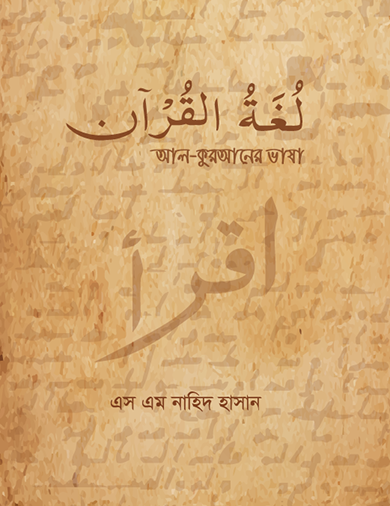 لُغَةُ القُرْآن
আল-কুরআনের ভাষা
اقرأ
এস এম নাহিদ হাসান